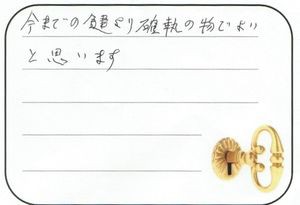 今までの鍵より確執の物でよい
と思います